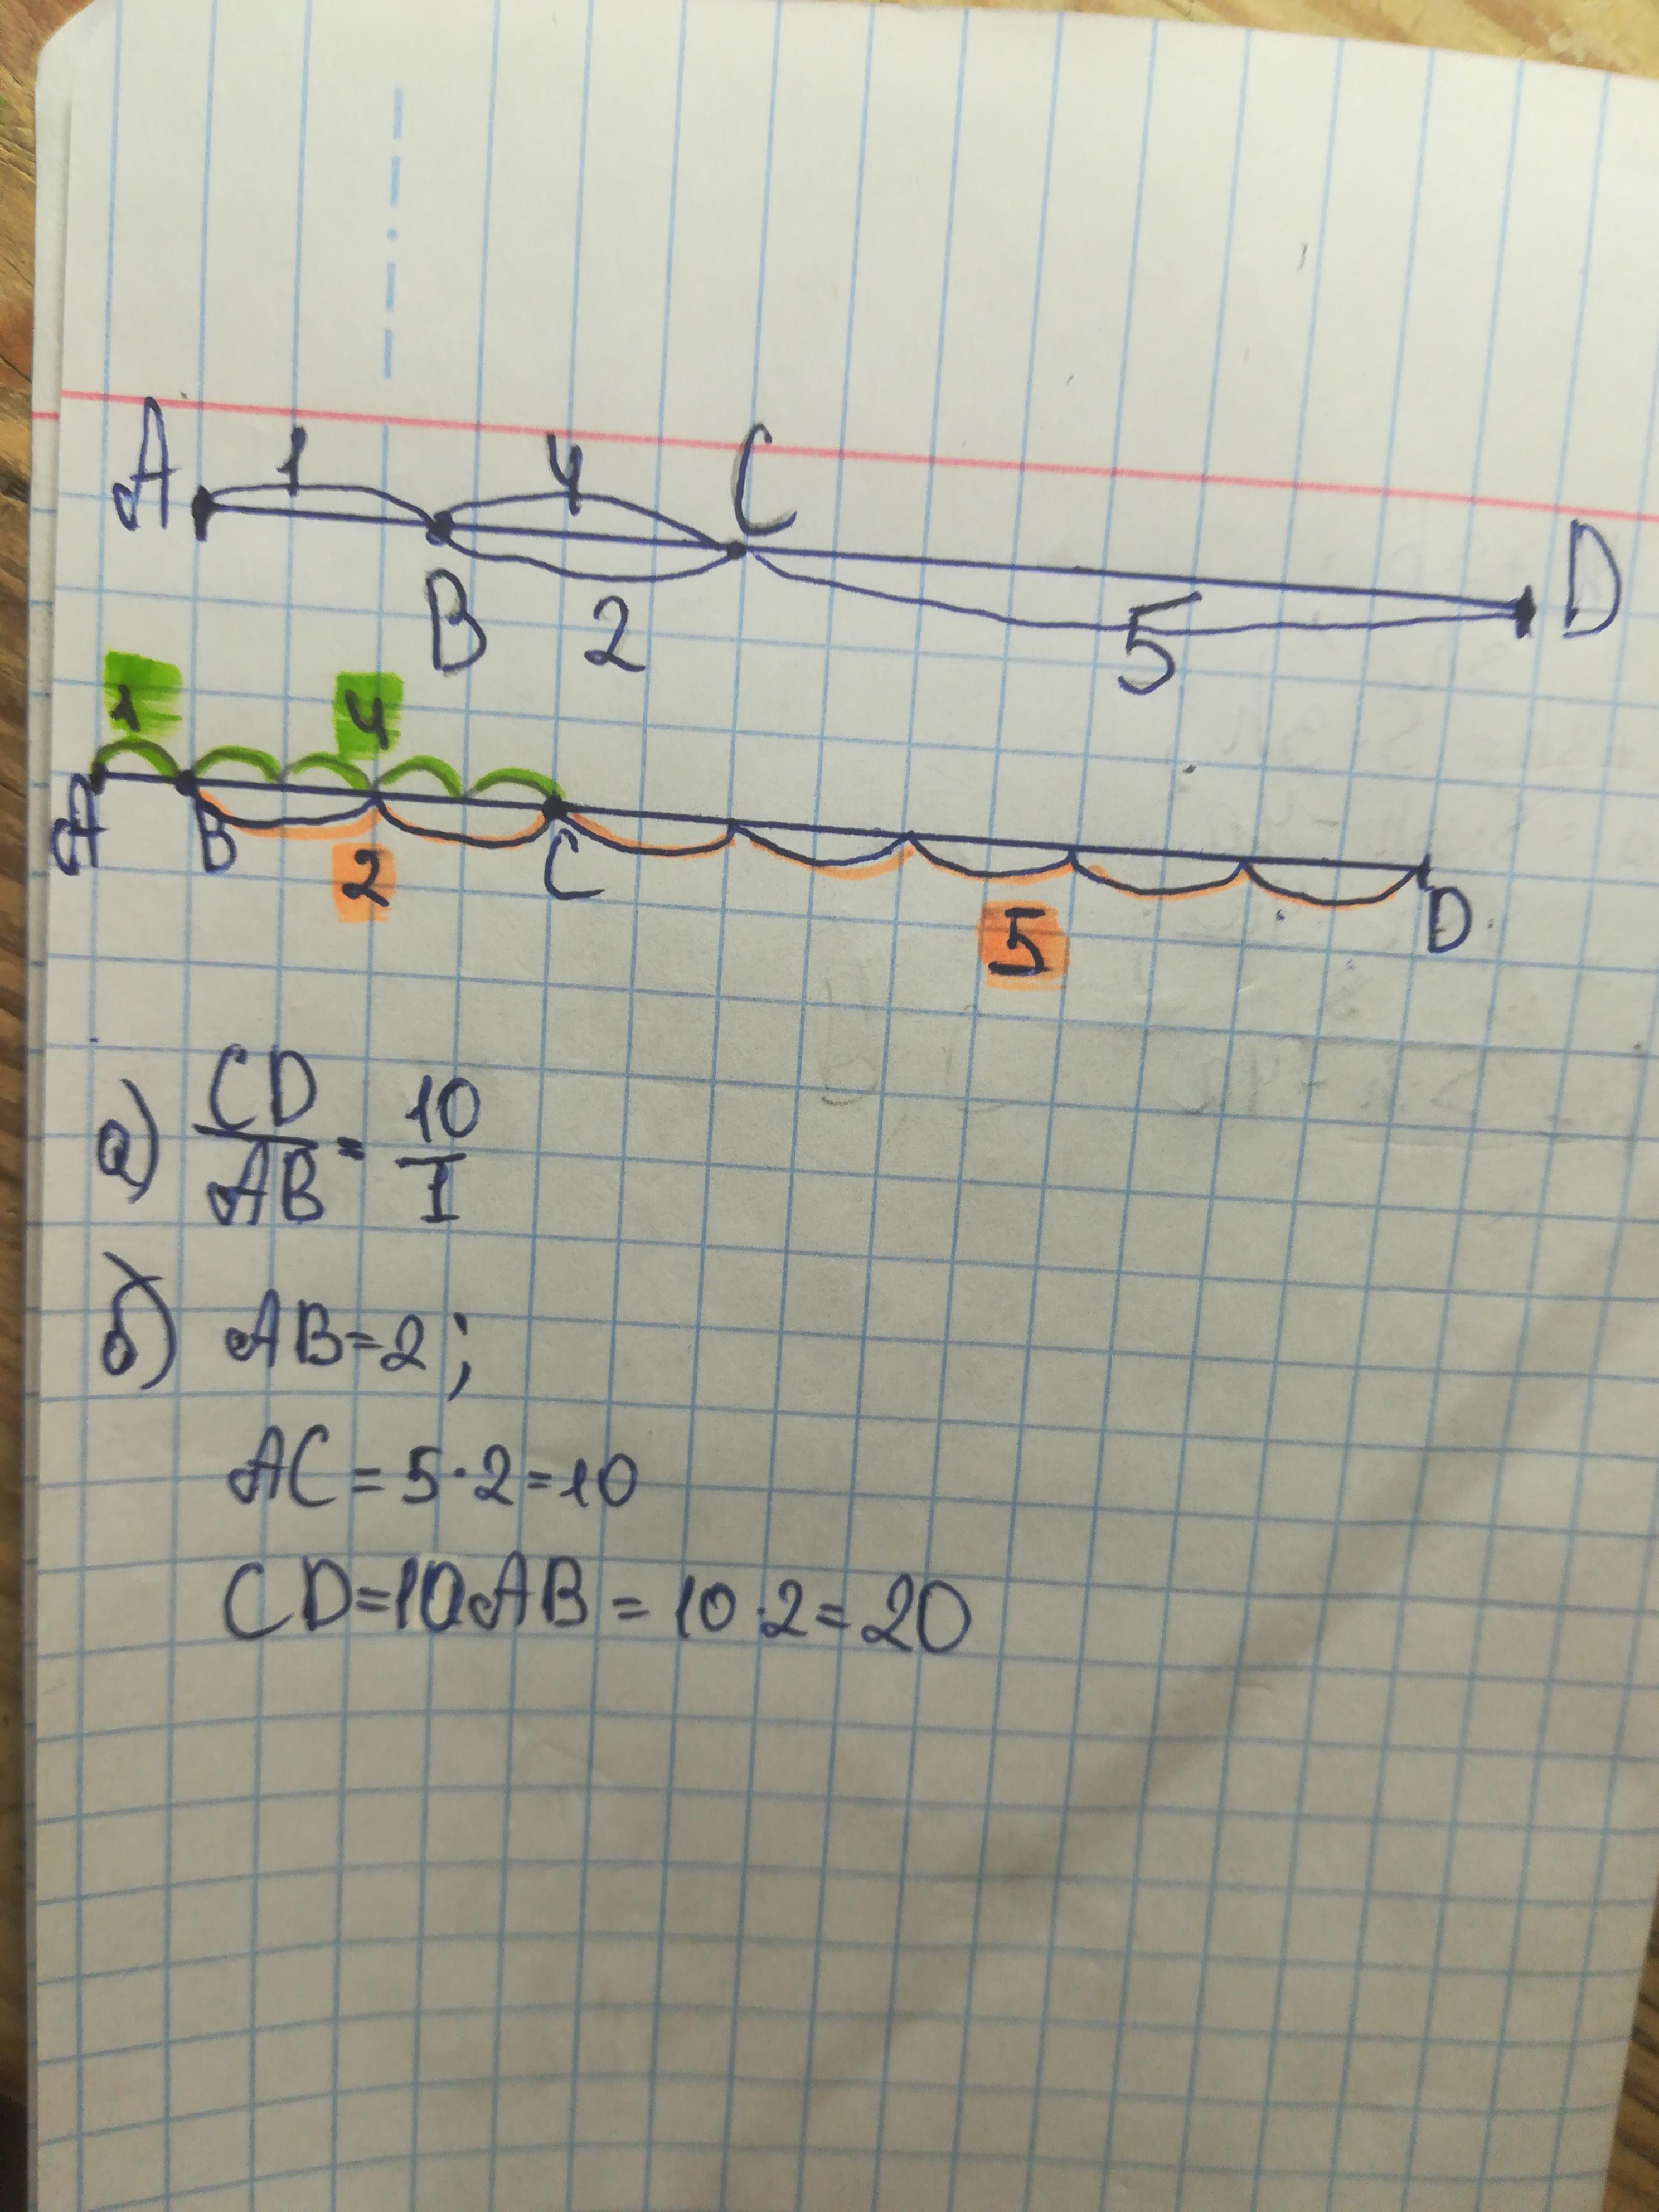 A 1 4 C D
B 2 5
1 4
A B 2 C 5 D
a) CD/AB = 10/1
б) AB=2;
AC=5·2=10
CD=10AB=10·2=20